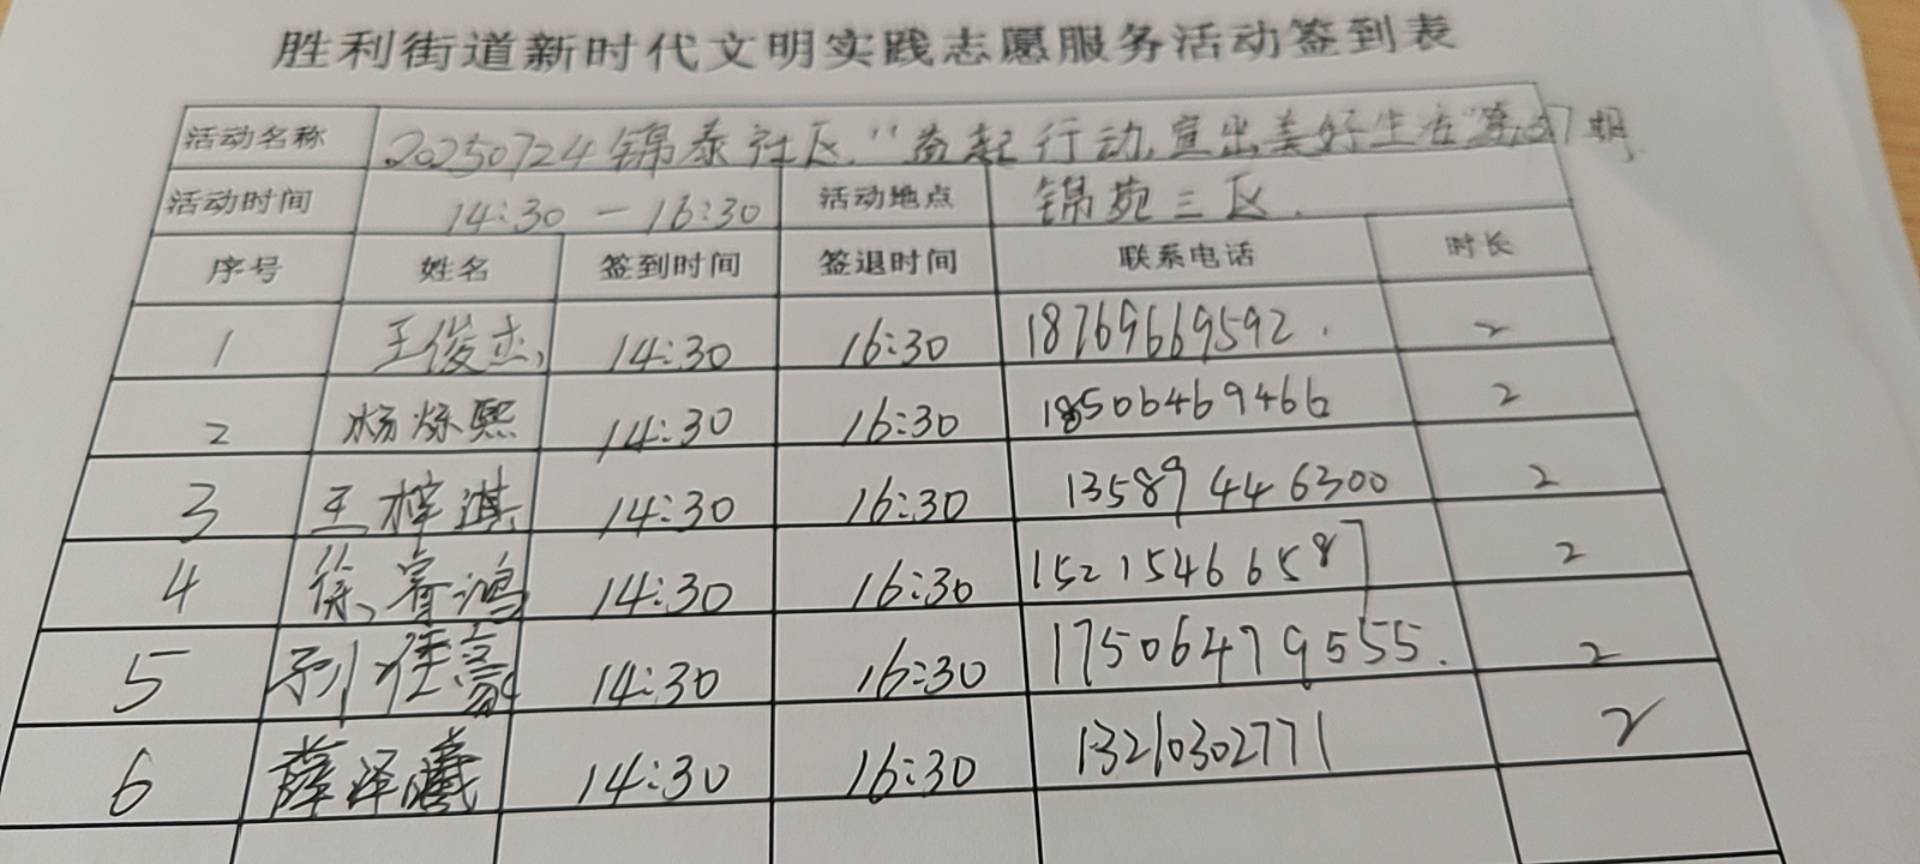 胜利街道新时代文明实践志愿服务活动签到表
活动名称 20250724锦泰社区“益起行动,宣出美好生活”第137期
活动时间 14:30—16:30 活动地点 锦苑三区.
序号 姓名 签到时间 签退时间 联系电话 时长
1 王俊杰 14:30 16:30 18769669592. 2
2 杨烁熙 14:30 16:30 18506469466 2
3 王梓淇 14:30 16:30 13589446300 2
4 徐睿鸿 14:30 16:30 15215466587 2
5 刘任豪 14:30 16:30 17506479555. 2
6 薛泽曦 14:30 16:30 13210302771 2